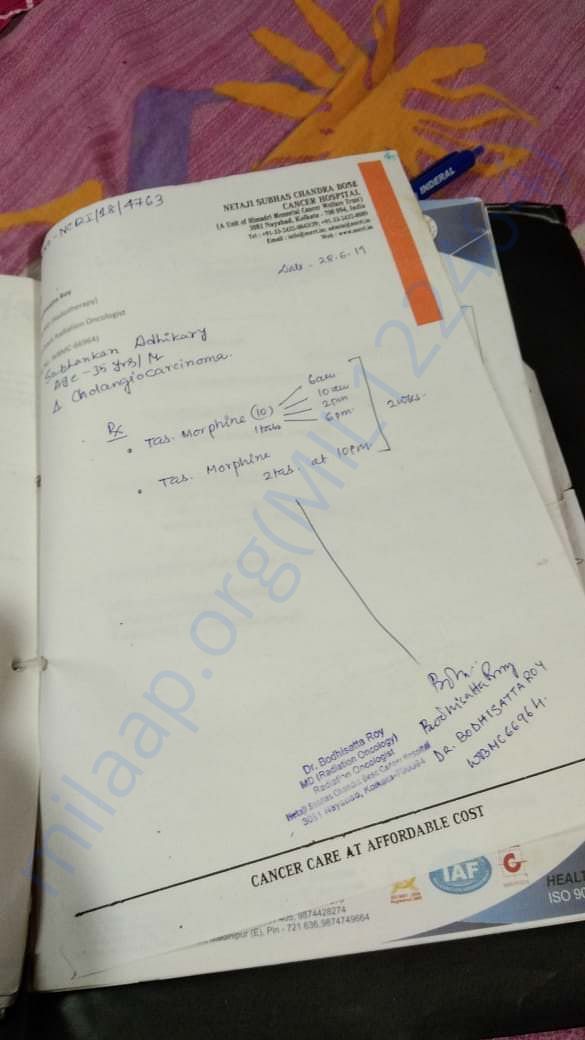 DI/18/4763
NETAJI SUBHAS CHANDRA BOSE
CANCER HOSPITAL
(A Unit of Himadri Memorial Cancer Welfare Trust)
3081 Nayabad, Kolkata - 700 094, India
Date - 28.6.19
Roy
(Radiotherapy)
Radiation Oncologist
Subhankan Adhikary
Age - 35 yrs/M
Δ Cholangiocarcinoma.
Rx
• Tas. Morphine (10) 1tas
6am
10am
2pm
6pm
2wks.
• Tas. Morphine
2tas. at 10pm
Bodhisatta Roy
DR. BODHISATTA ROY
WBMC66964.
Dr. Bodhisatta Roy
MD (Radiation Oncology)
Radiation Oncologist
Netaji Subhas Chandra Bose Cancer Hospital
3081 Nayabad, Kolkata-700094
CANCER CARE AT AFFORDABLE COST
IAF
HEALT
ISO 90
9874428274
(E), Pin - 721 636, 9874749664
INDERAL
milaap.org(MIL